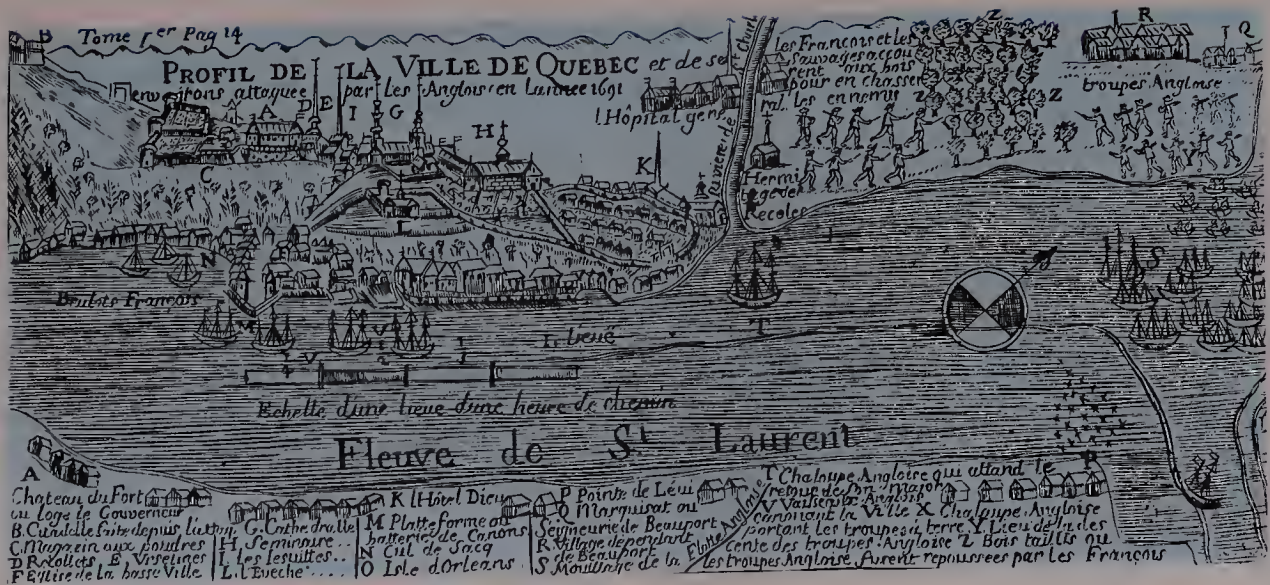 B Tome 1er Pag 14
PROFIL DE LA VILLE DE QUEBEC et de ses
environs attaquee par les Anglois en Lannee 1691
les Francois et les
Sauvages accou
rent aux bois
pour en chasser
les ennemis
Z
Z
Z
I R
Q
troupes Angloise
l'Hôpital gen
ral
Riviere de St Charle
Hermi
tage des
Recolets
D E I G
H
K
C
F
L
N
Brulots François
M
V
V
1. lieuë
T
S
Echelle d'une lieue d'une heure de chemin
Fleuve de St Laurent
A
P
Chateau du Fort
ou loge le Gouverneur
B. Citadelle faite depuis
C. Magazin aux poudres
D Recollets E. Urselines
F Eglise de la basse Ville
G. Cathedralle
H. Seminaire
I. les Iesuittes
L. l'Eveché
K l'Hôtel Dieu
M Platte forme ou
batterie de Canons
N Cul de Sacq
O Isle d'Orleans
P Pointe de Lévi
Q Marquisat ou
Seigneurie de Beauport
R. Village dependant
de Beauport
S. Moüillage de la
Flotte Angloise
T Chaloupe Angloise qui attand le
retour de son major
V Vaisseaux Anglois
canonant la Ville X Chaloupe Angloise
portant les troupes à terre Y Lieu de la des
cente des troupes Angloise Z Bois taillis ou
les troupes Angloise furent repoussees par les François